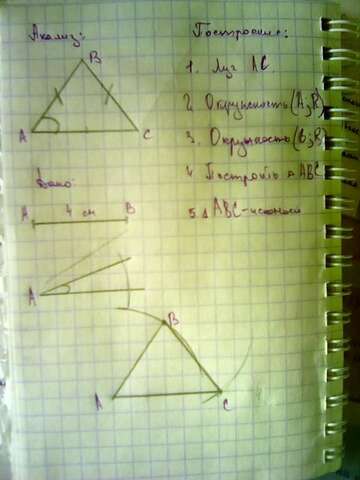 Анализ:
B
A
C
Дано:
A 4 см B
A
B
A
C
Построение:
1. Луч AC
2. Окружность (A; R)
3. Окружность (B; R)
4. Построить △ ABC
5. △ ABC-искомый